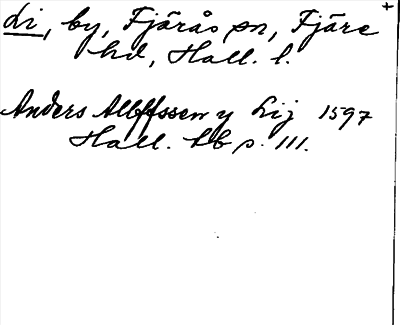 Li, by, Fjärås sn, Fjäre
hd, Hall. l.
Anders Allffssen y Lij 1597
Hall. hb s. 111.